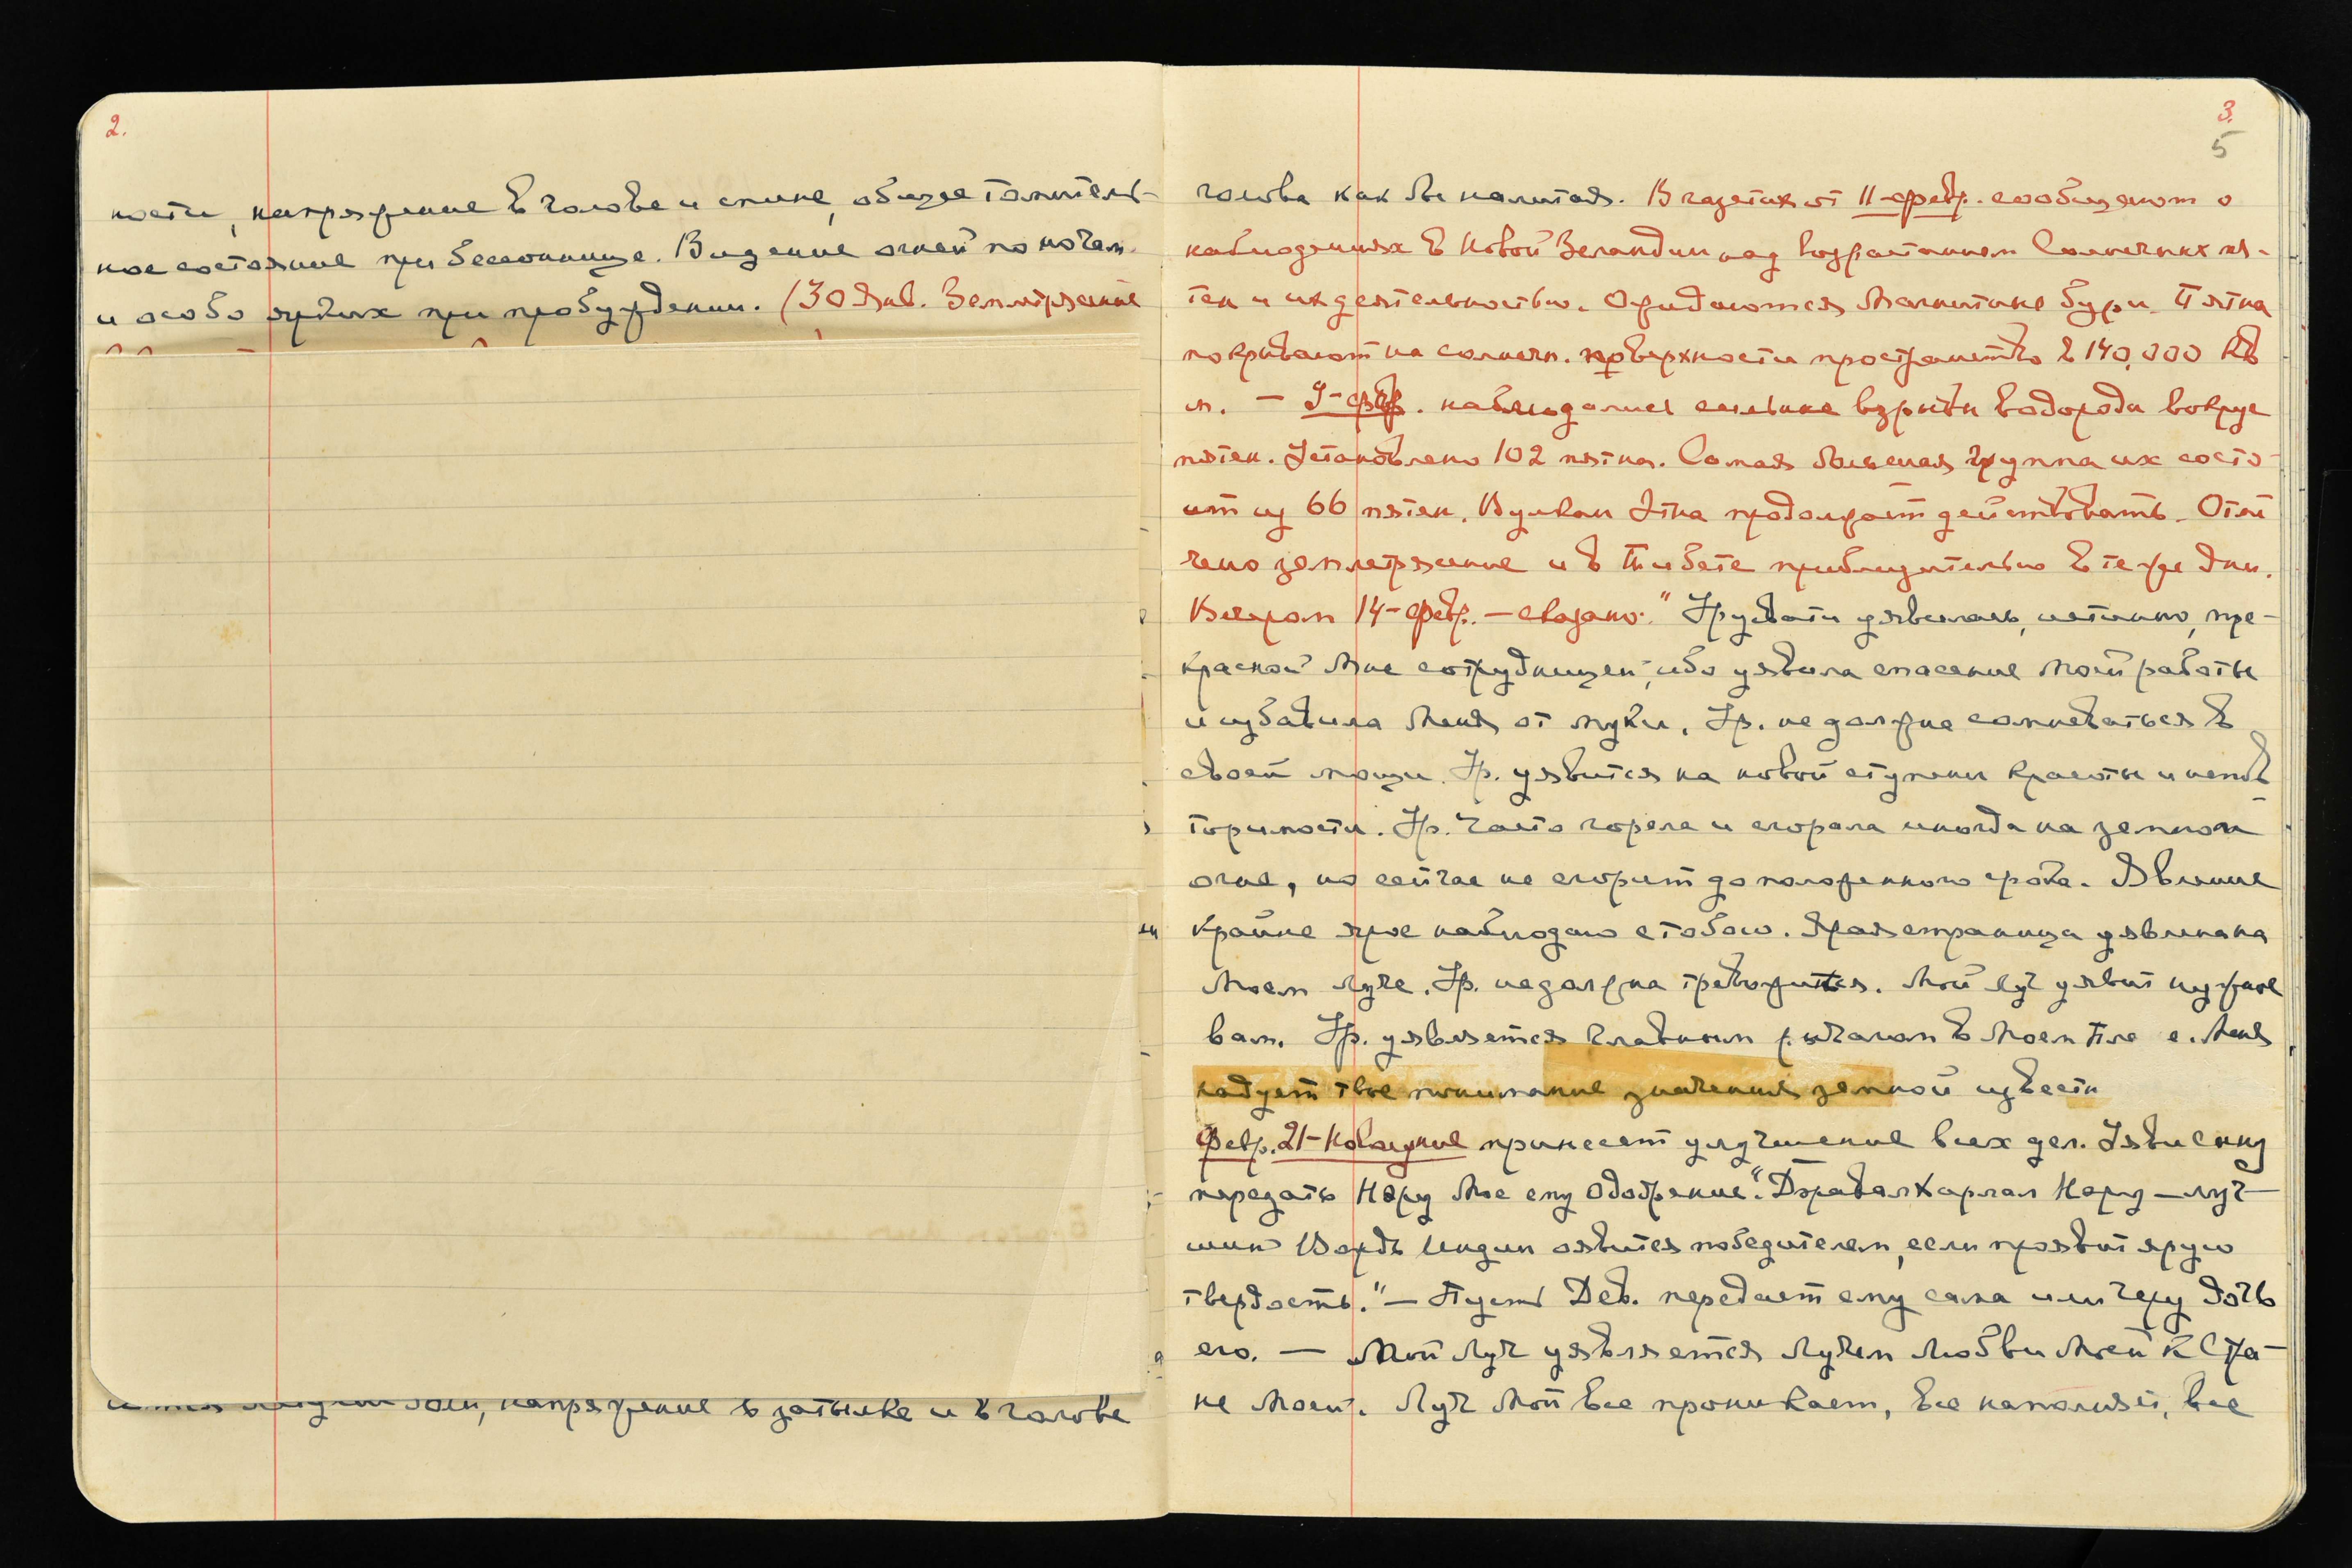 2.
ности, напряжение в голове и спине, общее томитель-
ное состояние при бессоннице. Видение огней по ночам
и особо ярких при пробуждении. (30 Янв. Землетрясение
напряжение в затылке и в голове
3.
5
голова как бы налитая. В газетах от 11-февр. сообщают о
наблюдениях в Новой Зеландии над возрастанием Солнечных пя-
тен и их деятельностью. Ожидаются Магнитные бури. Пятна
покрывают на солнечн. поверхности пространство в 140,000 кв
м. — 9-февр. наблюдались сильные взрывы водорода вокруг
пятен. Установлено 102 пятна. Самая большая группа их состо-
ит из 66 пятен. Вулкан Этна продолжает действовать. Отме
чено землетрясение и в Тибете приблизительно в те же дни.
Вечером 14-февр. — сказано: "Урусвати явилась, истинно, пре-
красной Мне сотрудницей, ибо уявила спасение Моей работы
и избавила Меня от муки. Ур. не должна сомневаться в
своей мощи. Ур. уявится на новой ступени красоты и непов
торимости. Ур. часто горела и сгорала иногда на земном
огне, но сейчас не сгорит до положенного срока. Явление
крайне ярое наблюдаю с тобою. Ярая страница уявлена на
Моем Луче. Ур. не должна тревожиться. Мой Луч уявит нужное
вам. Ур. уявляется главным рычагом в Моем Пле е. Меня
радует твое понимание значения земной извести
Февр. 21-Новолуние принесет улучшение всех дел. Уяви
передать Неру Мое ему Одобрение". Джавахарлал Неру — луч-
ший Вождь Индии оявится победителем, если проявит ярую
твердость." — Пусть Дев. передает ему сама или через дочь
его. — Мой Луч уявляется Лучем Любви Моей к Стра-
не Моей. Луч Мой все проникает, все наполняет, все